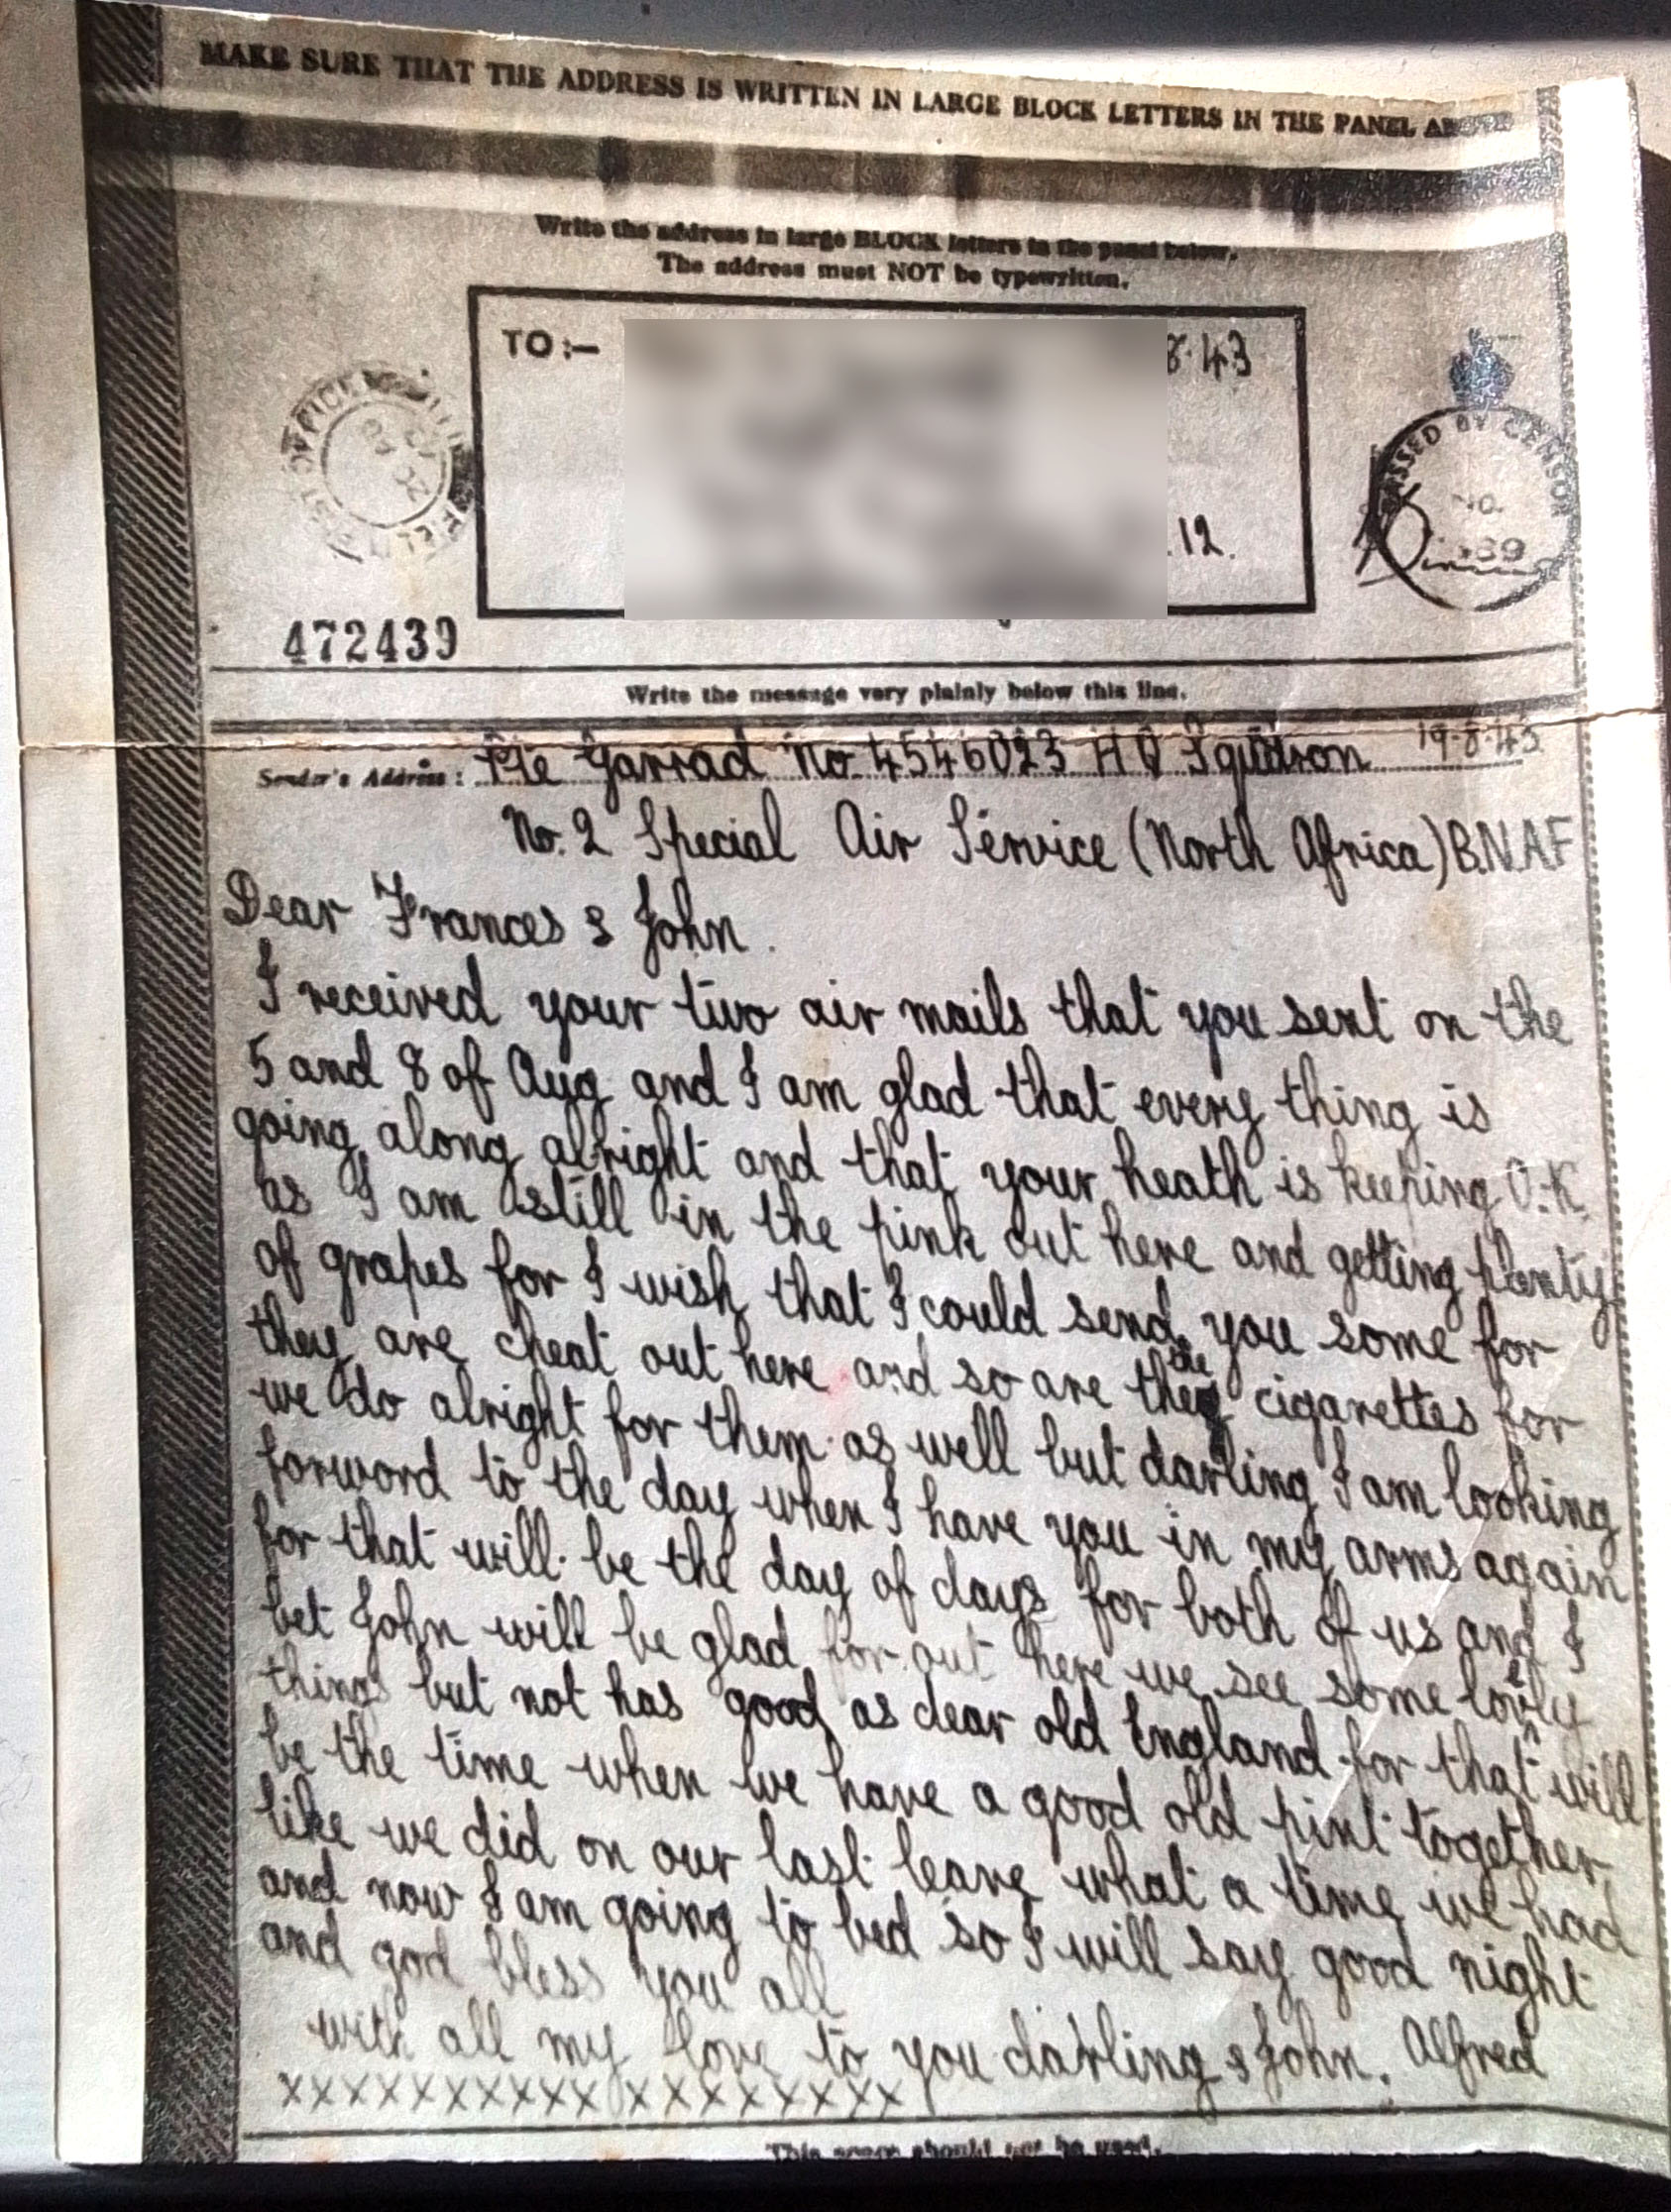 MAKE SURE THAT THE ADDRESS IS WRITTEN IN LARGE BLOCK LETTERS IN THE PANEL
Write the address in large BLOCK letters in the panel below.
The address must NOT be typewritten.
TO :—
8.43
12.
PASSED BY CENSOR
No.
472439
Write the message very plainly below this line.
Sender's Address: Pte Garrad No 4546023 H Q Squdron 19-8-43
No. 2 Special Air Service (North Africa) B.N.A.F
Dear Frances & John.
I received your two air mails that you sent on the
5 and 8 of Aug and I am glad that every thing is
going along alright and that your heath is keeping O.K.
as I am still in the pink out here and getting plenty
of grapes for I wish that I could send you some for
they are cheat out here and so are the cigarettes for
we do alright for them as well but darling I am looking
forword to the day when I have you in my arms again
for that will be the day of days for both of us and I
bet John will be glad for out here we see some lovely
things but not has good as dear old England for that will
be the time when we have a good old pint together
like we did on our last leave what a time we had
and now I am going to bed so I will say good night
and god bless you all
with all my love to you darling & John. Alfred
xxxxxxxxxx xxxxxxxx
This space should not be used.